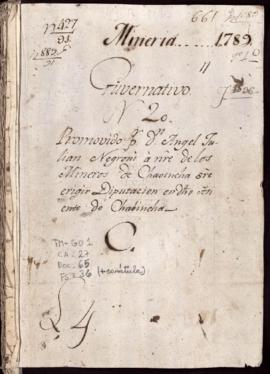 661
nº 427
91
Mineria.... 1789
889
91
Guvernativo
N 20.
Promovido pr. Dn. Angel Ju-
lian Negroni a nre de los
Mineros de Chavincha sre
erigir Diputacion en dho
de Chabincha
C.
TM-GO 1
CA: 27
DOC: 65
FS: 36 (+carátula)
L4